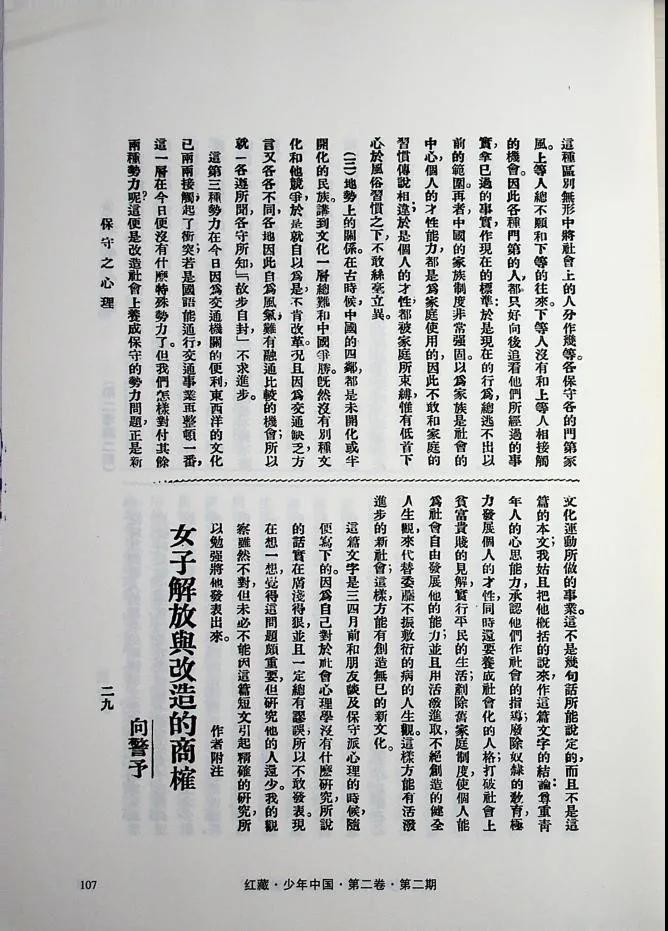 這種區別無形中將社會上的人分作幾等。各保守各的門第家
風。上等人總不願和下等的往來。下等人沒有和上等人相接觸
的機會。因此各種門第的人,都只好向後追看他們所經過的事
實,拿已過的事實,作現在的標準;於是現在的行為,總逃不出以
前的範圍。再者,中國的家族制度非常强固。以為家族是社會的
中心,個人的才性能力,都是為家庭使用的,因此不敢和家庭的
習慣傳說相違;於是個人的才性,都被家庭所束縛,惟有低首下
心於風俗習慣之下,不敢絲毫立異。
(三)地勢上的關係。在古時候,中國的四鄰,都是未開化或半
開化的民族。講到文化一層,總難和中國爭勝。旣然沒有別種文
化和他競爭,於是就自以為是,不肯改革。况且因為交通缺乏,方
言又各各不同,各地因此自為風氣,雖有融通比較的機會;所以
就「各遵所聞,各守所知,」「故步自封」不求進步。
這第三種勢力,在今日因為交通機關的便利,東西洋的文化
已兩兩接觸,起了衝突;若是國語能通行,交通事業再整頓一番,
這一層在今日便沒有什麼特殊勢力了。但我們怎樣對付其餘
兩種勢力呢?這便是改造社會上養成保守的勢力問題,正是新
保守之心理
文化運動所做的事業。這不是幾句話所能說定的,而且不是這
篇的本文;我姑且把他概括的說來,作這篇文字的結論:尊重青
年人的心思能力,承認他們作社會的指導;廢除奴隸的教育,極
力發展個人的才性,同時還要養成社會化的人格;打破社會上
貧富貴賤的見解,實行平民的生活;剷除舊家庭制度,使個人能
為社會自由發展他的能力;並且用活潑進取,不絕創造的健全
人生觀,來代替委靡不振敷衍的病的人生觀。這樣方能有活潑
進步的新社會;這樣方能有創造無已的新文化。
這篇文字是三四月前和朋友談及保守派心理的時候,隨
便寫下的。因為自己對於社會心理學沒有什麼研究,所說
的話實在膚淺得狠,並且一定總有謬誤,所以不敢發表。現
在想一想,覺得這問題頗重要,但研究他的人還少。我的觀
察雖然不對,但未必不能因這篇短文引起精確的研究,所
以勉强將他發表出來。
作者附注
女子解放與改造的商榷
向警予
二九
107
红藏·少年中国·第二卷·第二期